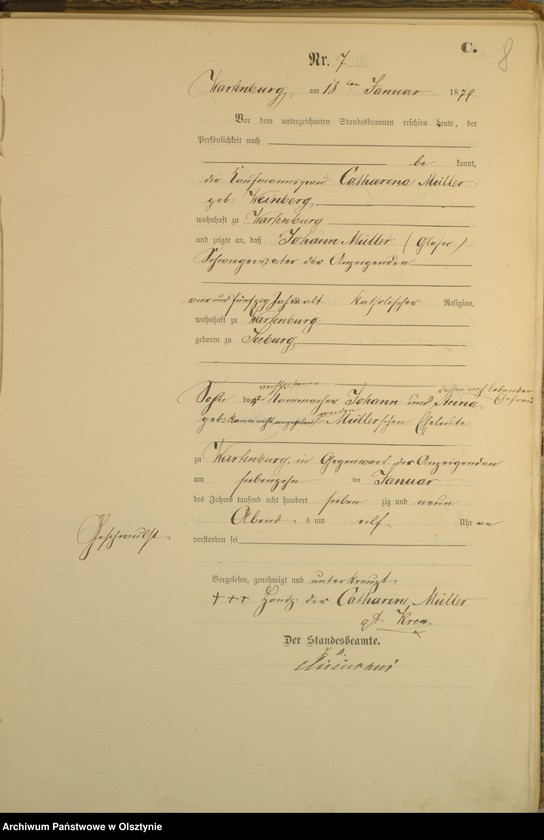 C.
8
Nr. 7
Wartenburg, am 18 ten Januar 1879
Vor dem unterzeichneten Standesbeamten erschien heute, der
Persönlichkeit nach
be kannt,
die Kaufmannsfrau Catharina Müller
geb: Weinberg,
wohnhaft zu Wartenburg
und zeigte an, daß Johann Müller (Glaser)
Schwiegervater der Anzeigenden
vier und fünfzig Jahr alt katholischer Religion,
wohnhaft zu Wartenburg
geboren zu Seeburg,
verstorbenen dessen noch lebender Ehefrau
Sohn des Johann und Anna
geb: kann nicht angegeben werden Müllerschen Eheleute
zu Wartenburg, in Gegenwart der Anzeigenden
am siebenzehn ten Januar
des Jahres tausend acht hundert sieben zig und neun
Abend s um eilf Uhr
verstorben sei
Vorgelesen, genehmigt und unterkreuzt
+++ Handz. der Catharina Müller
Der Standesbeamte.
Archiwum Państwowe w Olsztynie